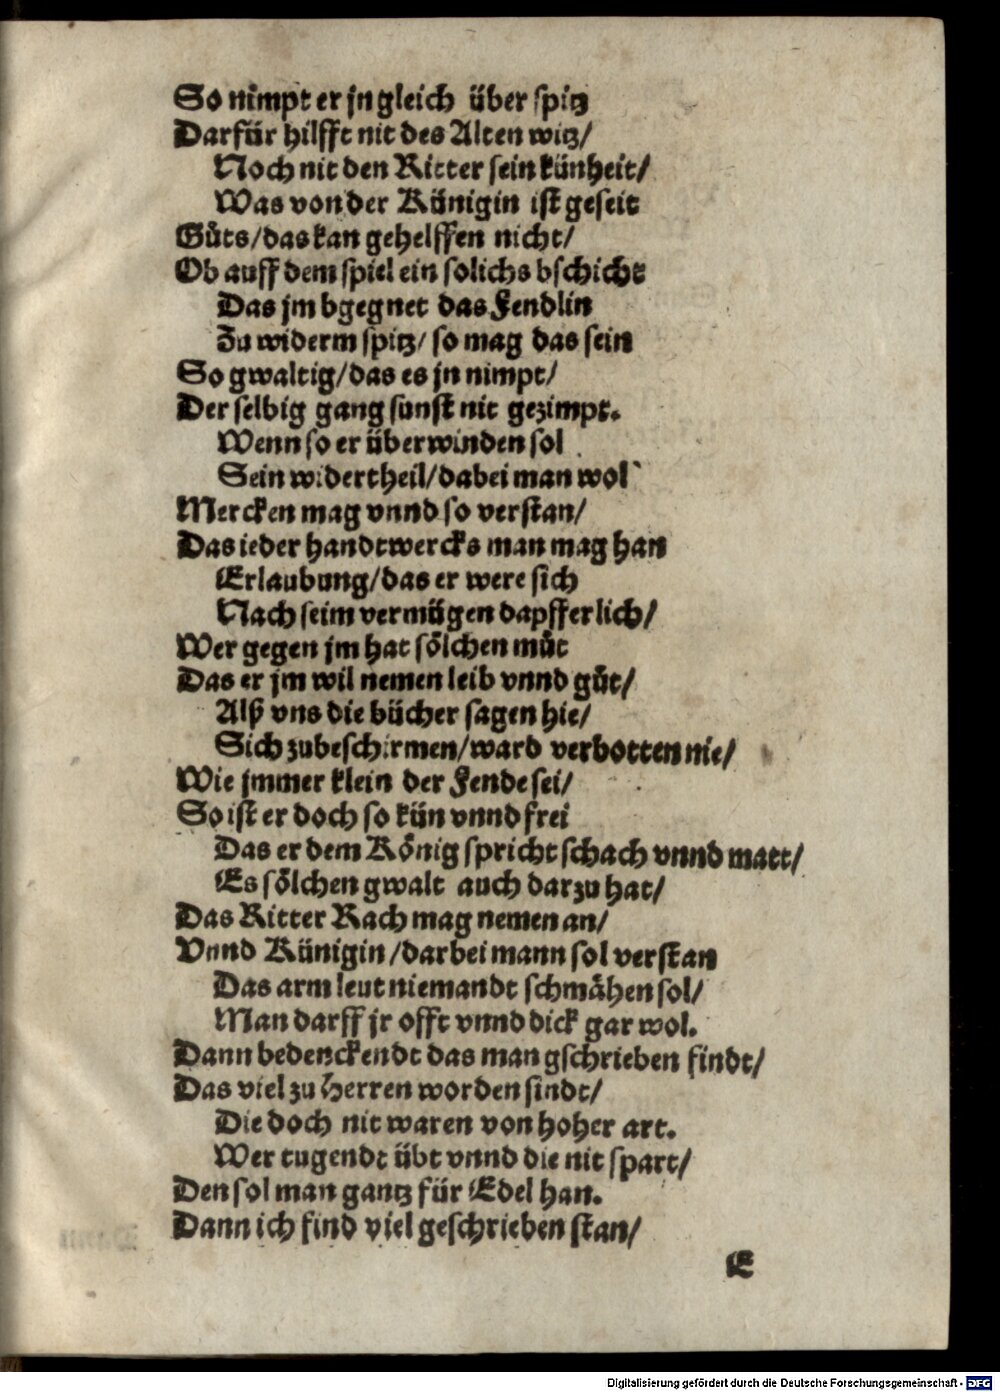 So nimpt er jn gleich über spitz
Darfür hilfft nit des Alten witz/
Noch nit den Ritter sein künheit/
Was von der Künigin ist geseit
Gůts/das kan gehelffen nicht/
Ob auff dem spiel ein solichs bschicht
Das jm bgegnet das Fendlin
Zu widerm spitz/ so mag das sein
So gwaltig/das es jn nimpt/
Der selbig gang sunst nit gezimpt.
Wenn so er überwinden sol
Sein widertheil/dabei man wol
Mercken mag vnnd so verstan/
Das ieder handtwercks man mag han
Erlaubung/das er were sich
Nach seim vermügen dapfferlich/
Wer gegen jm hat sölchen můt
Das er jm wil nemen leib vnnd gůt/
Alß vns die bücher sagen hie/
Sich zubeschirmen/ward verbotten nie/
Wie jmmer klein der Fende sei/
So ist er doch so kün vnnd frei
Das er dem König spricht schach vnnd matt/
Es sölchen gwalt auch darzu hat/
Das Ritter Rach mag nemen an/
Vnnd Künigin/darbei mann sol verstan
Das arm leut niemandt schmähen sol/
Man darff jr offt vnnd dick gar wol.
Dann bedenckendt das man gschrieben findt/
Das viel zu Herren worden sindt/
Die doch nit waren von hoher art.
Wer tugendt übt vnnd die nit spart/
Den sol man gantz für Edel han.
Dann ich find viel geschrieben stan/
E
Digitalisierung gefördert durch die Deutsche Forschungsgemeinschaft - DFG